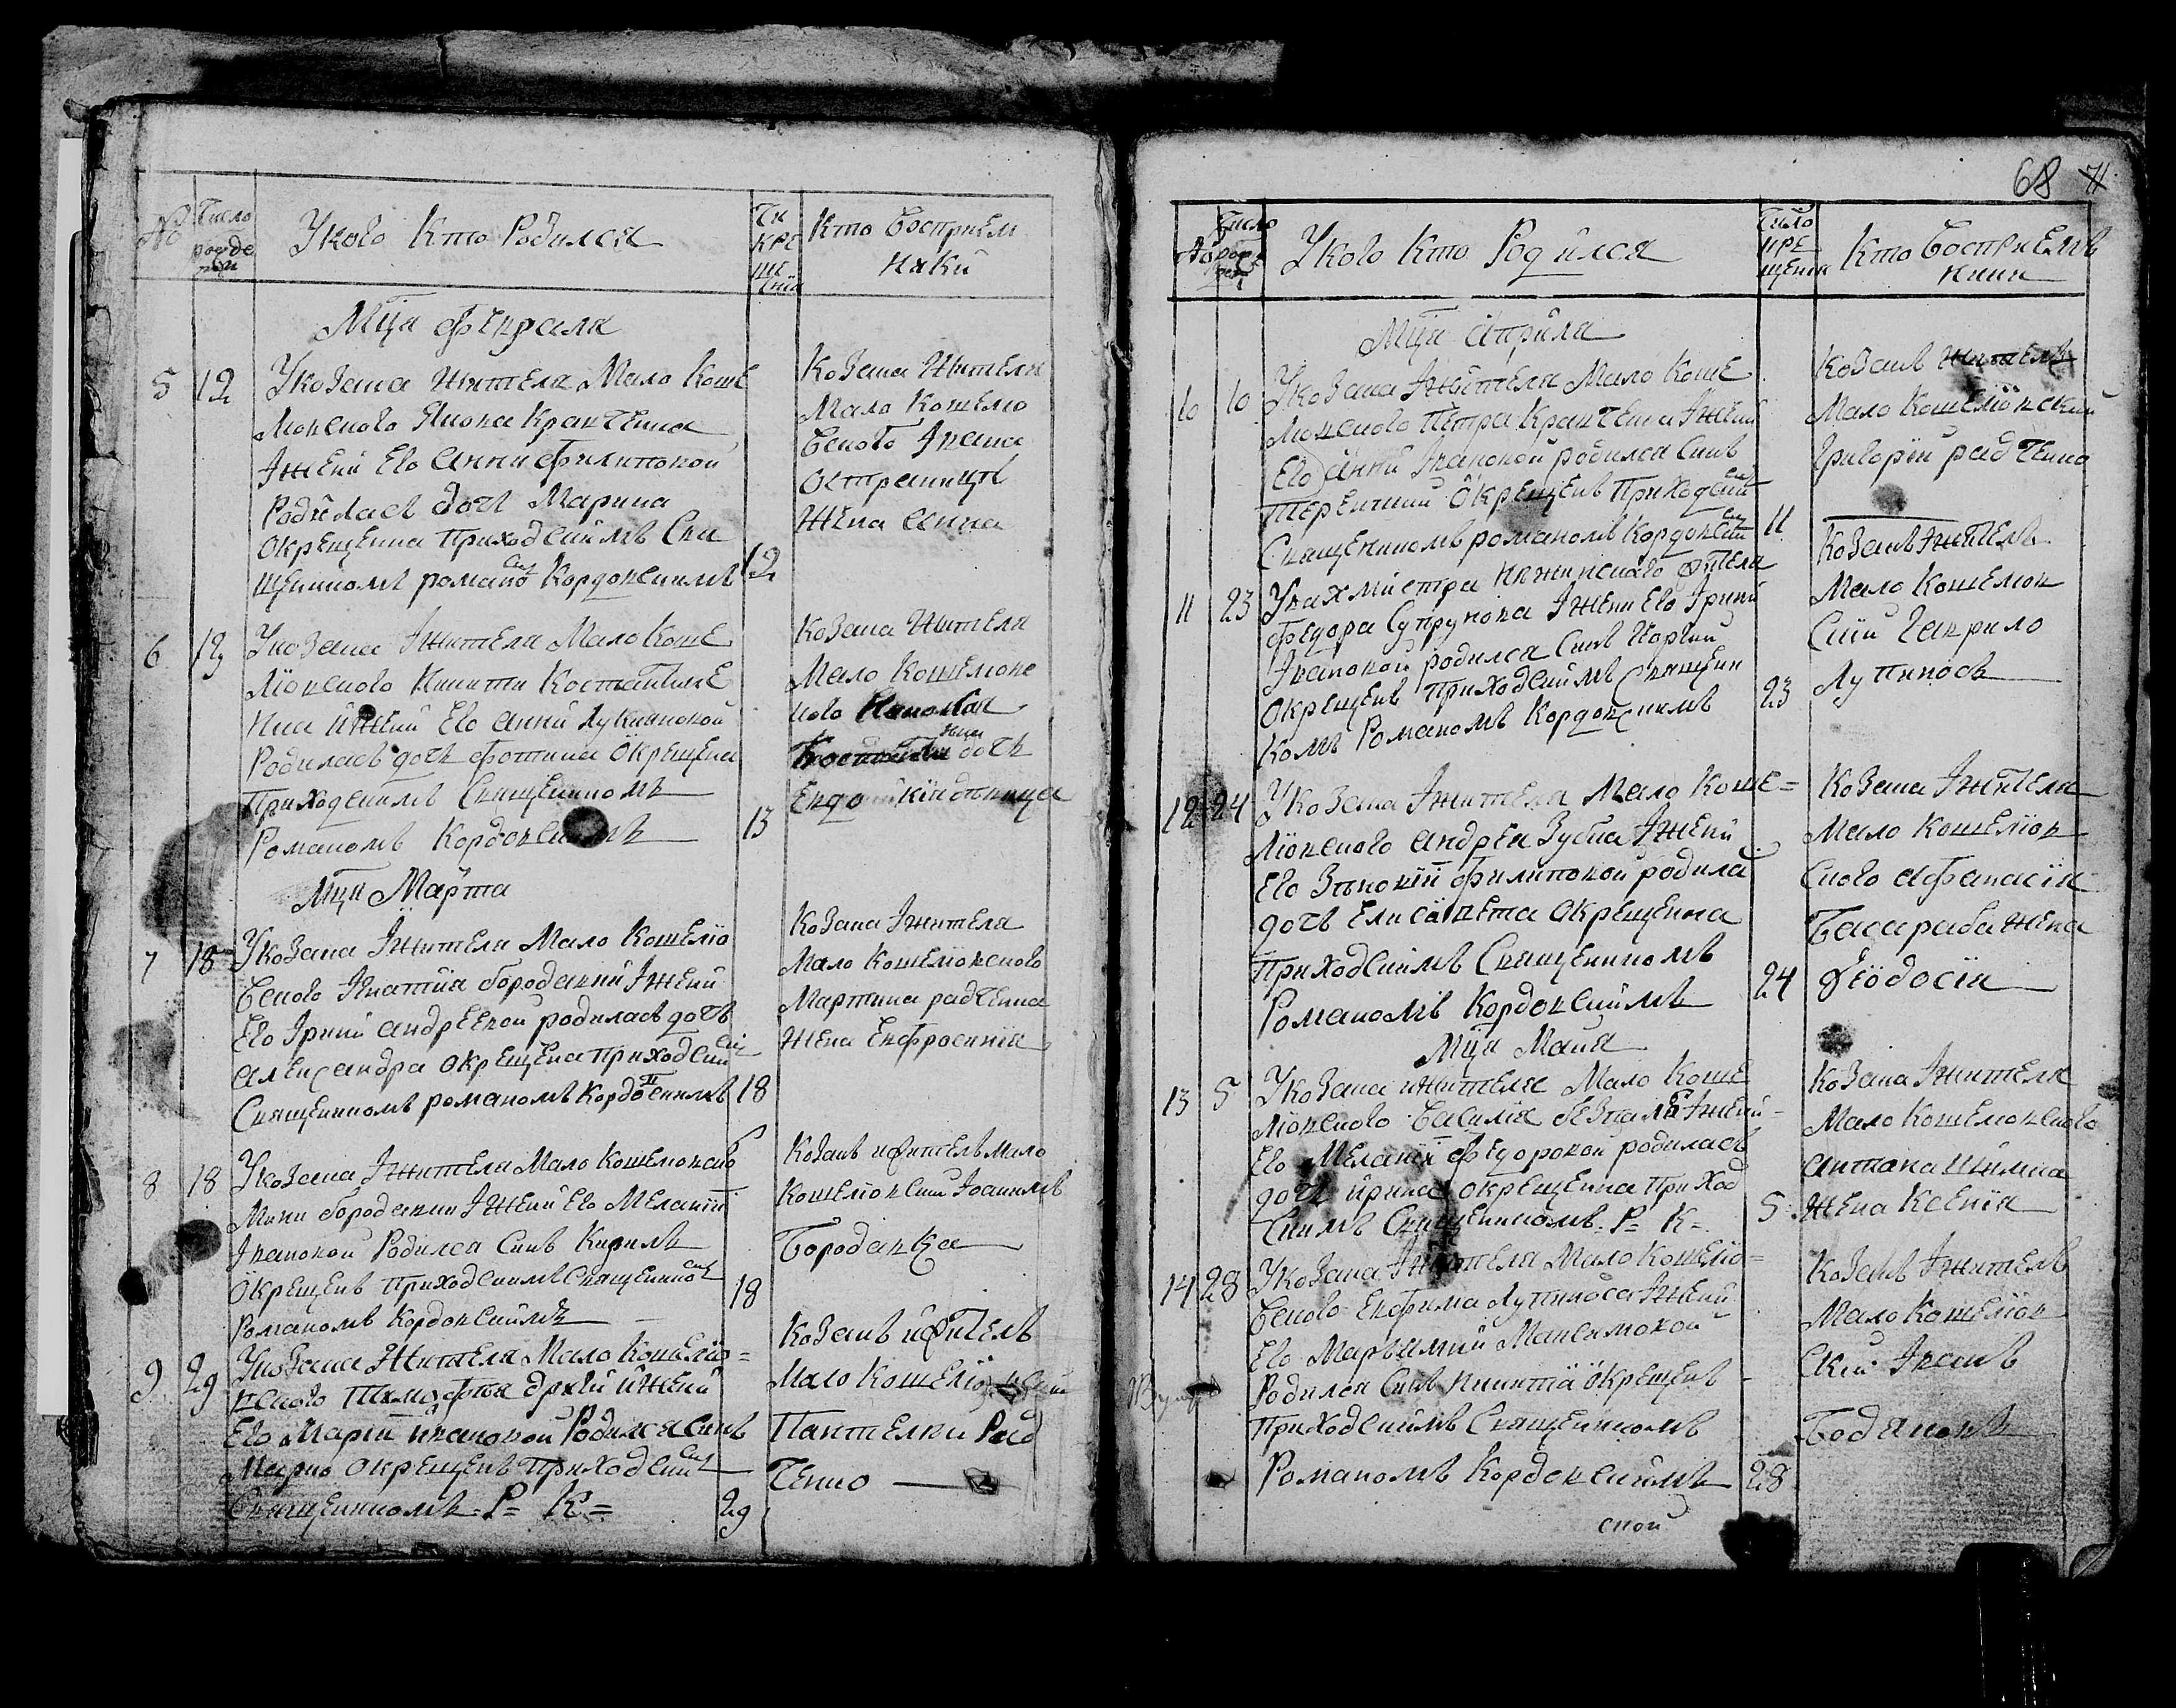 №
Число
рожде
ния
У кого кто родился
Чи
КРЕ
ЩЕ
ния
Кто восприем
ники
Мца Февраля
5 12
У козака жителя Мало Коше
лювского Якова Кравченка
І жени Его Анни Филиповой
Родилась дочь Марина
окрещенна приходскимъ Свя
щенникомъ романо Кордовскимъ
12
Козака жителя
Мало Кошелю
вского Ивана
Остраници
Жена Анна
6 12
У козака І жителя Мало Коше
ліовского Никити Костантине
нка и жени Его Анни Лукяновой
Родилась дочь Фотина окрещена
приходскимъ Священникомъ
Романомъ Кордовскимъ
13
Козака жителя
Мало Кошеловс
кого
дочь
Евдо
Мця Марта
7 18
У козака Іжителя Мало Кошеліо
вского Игнатия бородавки Іжени
Его Ірини андреевой родилась дочь
александра окрещена приходским
Священникомъ романомъ Кордовскимъ
18
Козака Іжителя
Мало Кошеліовского
Мартина радченка
Жена Евфросиния
8 18
У козака Іжителя Мало Кошеловско
Мини бородавки Іжени Его Мелании
Івановой Родился Синъ Кирилъ
окрещенъ приходскимъ Священнико
Романомъ Кордовскимъ
18
Козакъ ижитель Мало
Кошеліовский Іоакимъ
Бородавка
9 29
У козака Жителя Мало Кошеліо=
вского Тимофея и жени
Его Марии ивановой Родился синъ
Марко окрещенъ приходским
Священникомъ Р= К=
29
Козакъ ижитель
Мало Кошеліовский
Пантелей Рад
ченко
68 71
№
Число
рож
дения
У кого кто родился
Число
КРЕ
щения
Кто восприемъ
ники
Мця Априля
10 10
У козака Іжителя Мало Коше
лювского Петра Кравченка Іжени
Его Анни Івановой родился Синъ
Терентий окрещенъ приходским
Священникомъ романомъ Кордовским
11
Козакъ житель
Мало Кошеліовский
Григорій радченко
11 23
У вахмистра Нежинского
Федора Супрунова Іжени Его Ірини
Івановой родился Синъ Георгий
окрещенъ приходскимъ Священ
комъ Романомъ Кордовскимъ
23
Козакъ Іжитель
Мало Кошелюв
ский Гаврило
Лупиносъ
12 24
У козака Іжителя Мало Коше=
ліовского андрея Зубка Іжени
Его Зѣновии Филиповой родила
дочь Елисавета окрещенна
приходскимъ Священникомъ
Романомъ Кордовскимъ
24
Козака Іжителя
Мало Кошеліов
ского афанасія
Басараба жена
Феодосія
Мця Майя
13 5
У козака ижителя Мало Коше
ліовского Василія Іжени
Его Меланіи Федоровой родилась
дочь ирина окрещенна приход
скимъ Священникомъ. Р= К=
5
Козака Іжителя
Мало Кошеловского
антона
жена Ксенія
14 28
У козака Іжителя Мало Кошеліо=
вского Евфима Лупиноса Іжени
Его Марѳи Максимовой
Родился Синъ Никита окрещенъ
приходскимъ Священникомъ
Романомъ Кордовскимъ
28
Козакъ Іжитель
Мало Кошеліов
ский Іванъ
ской